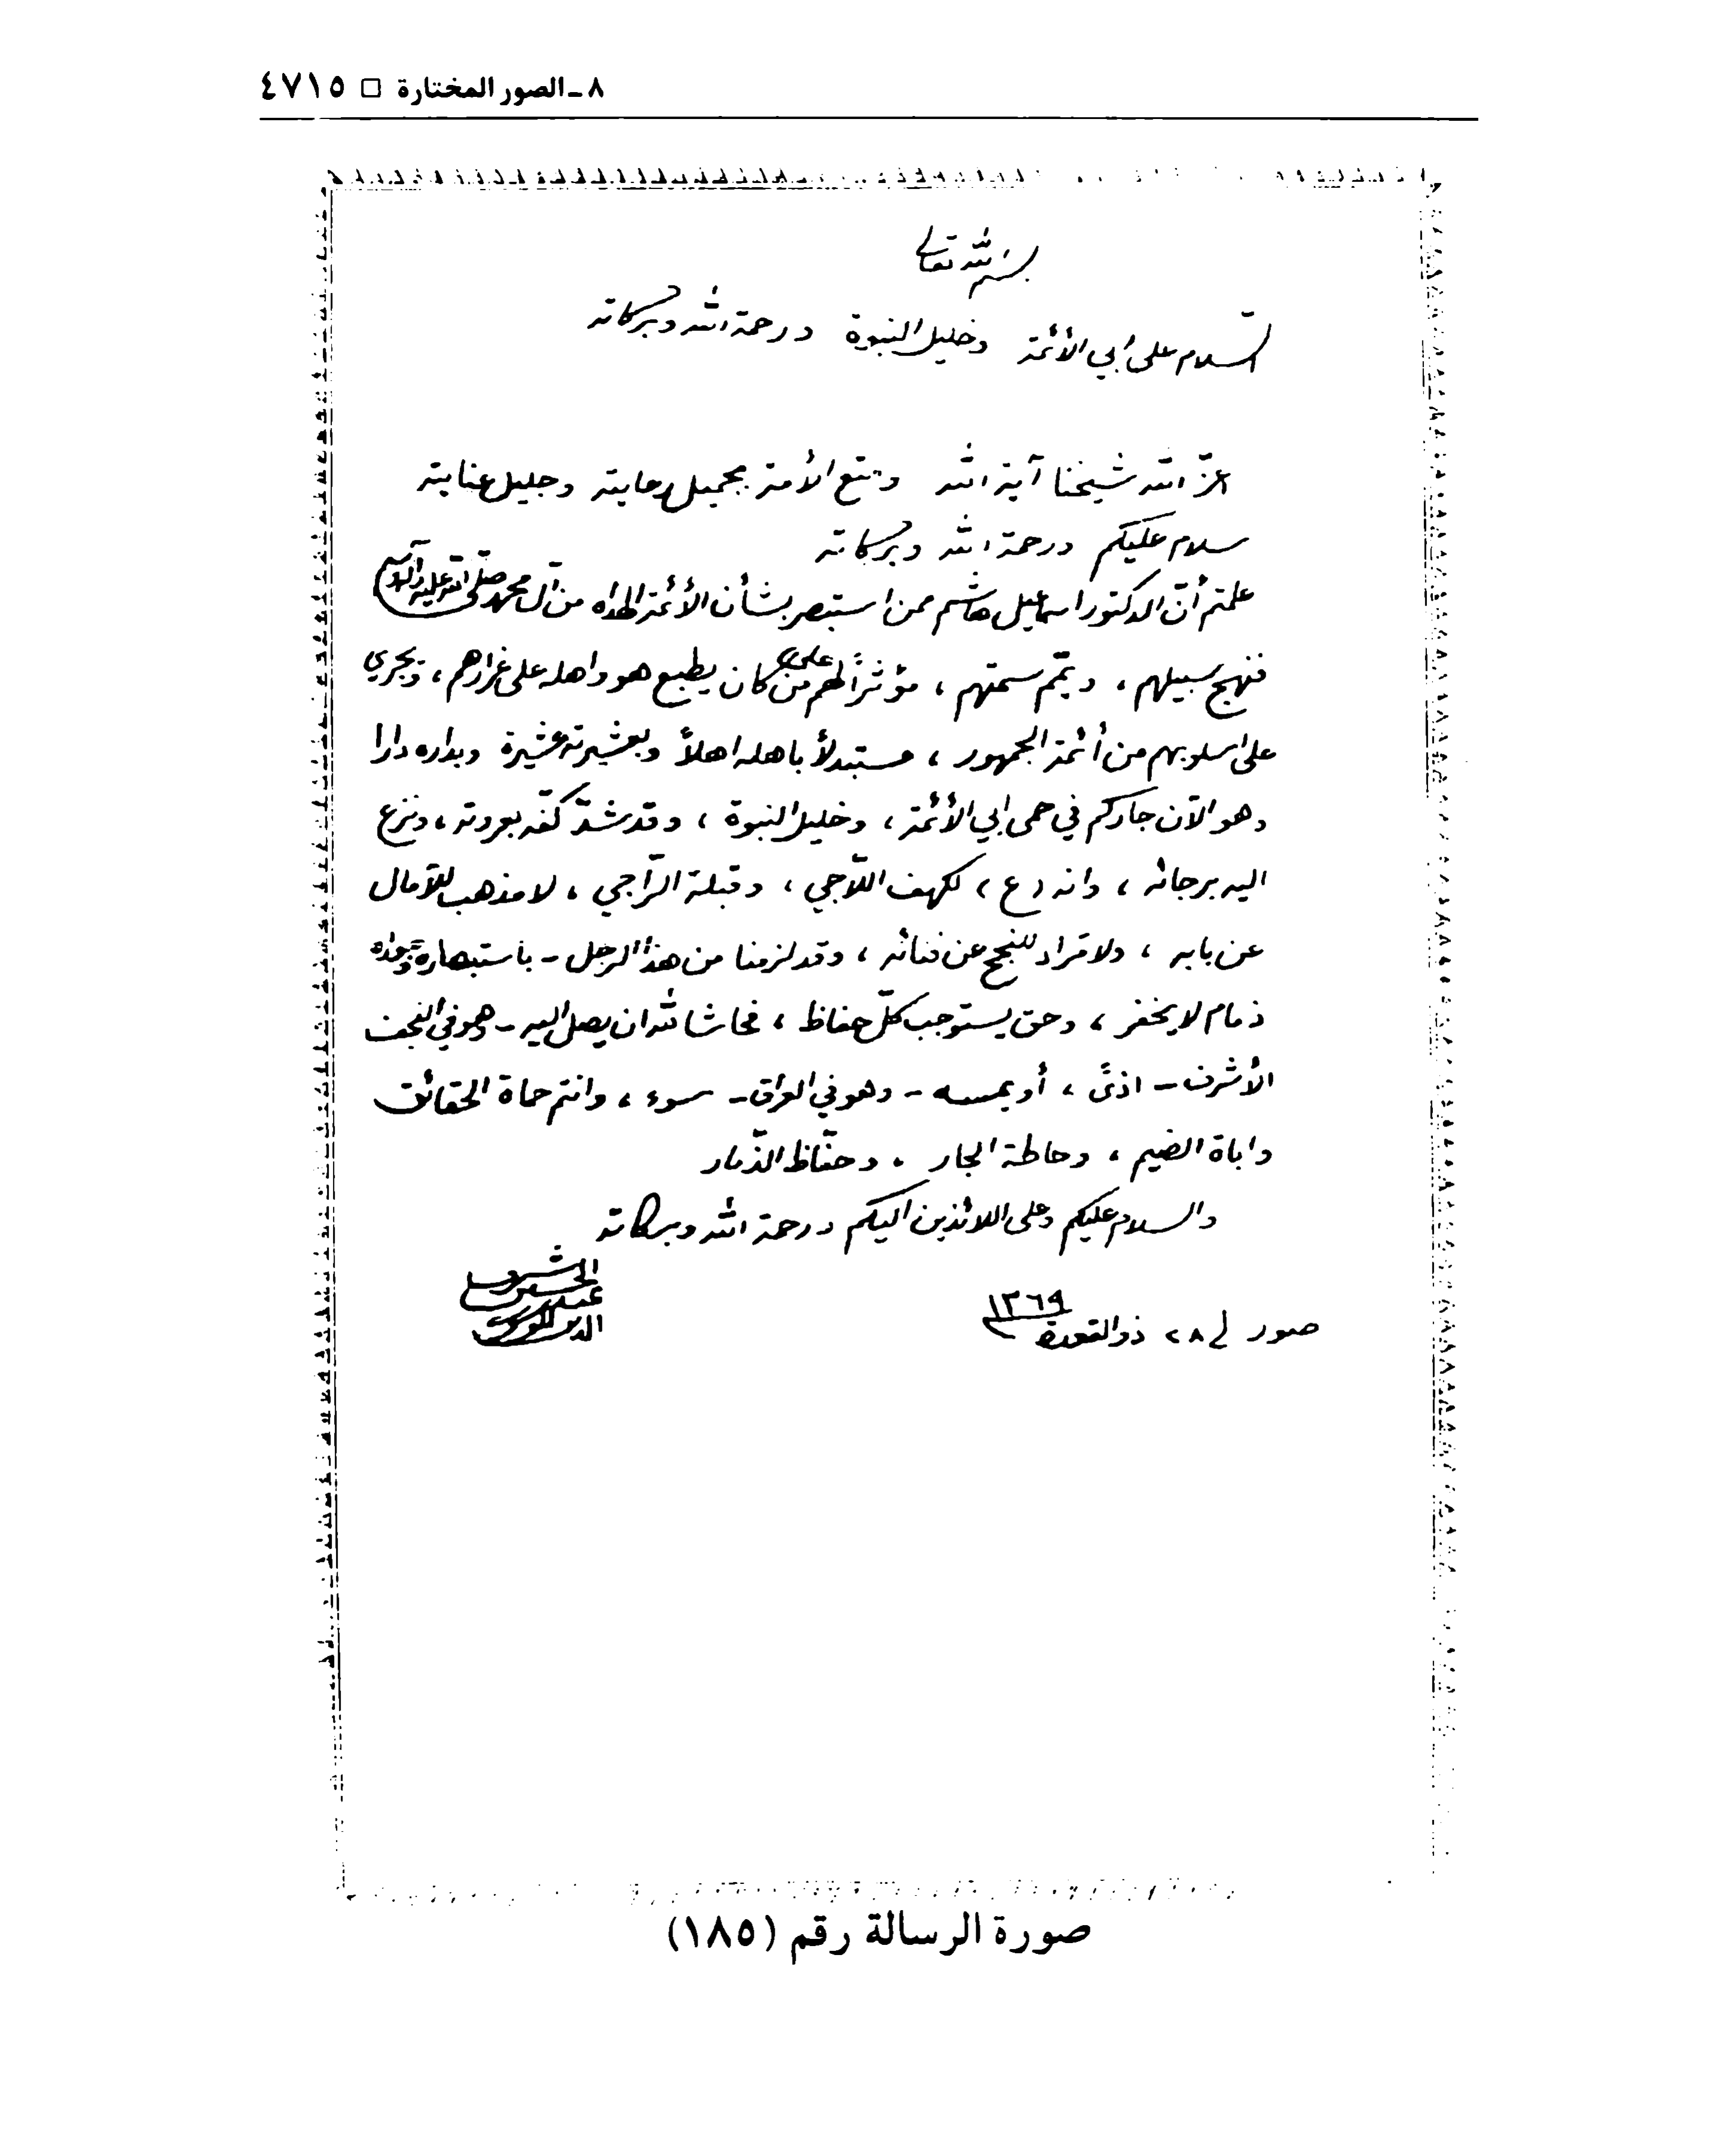 ٨ ـ الصور المختارة □ ٤٧١٥
بسم الله تعالى
السلام على أبي الأئمة وخليل النبوة ورحمة الله وبركاته
اعزّ الله شيخنا آية الله ومتع الأمة بجميل رعايته وجليل عنايته
سلام عليكم ورحمة الله وبركاته
علمتم أنّ الدكتور اسماعيل هاشم ممن استبصر بشأن الأئمة الهداه من آل محمد صلى الله عليه وآله
فنهج سبيلهم ، ويمّم سمتهم ، مؤثراً لهم على من كان يطبع هو واهله على غرارهم ، ويجري
على اسلوبهم من أئمة الجمهور ، مستبدلاً باهله اهلاً وبعشيرته عشيرة وبداره دارا
وهو الآن جاركم في حمى ابي الأئمة ، وخليل النبوة ، وقد شدّ كفّه بعروته ، ونزع
اليه برجائه ، وانه (ع) لكهف اللّاجي ، وقبلة الرّاجي ، لا مذهب للآمال
عن بابه ، ولا مراد للنجح عن فنائه ، وقد لزمنا من هذا الرجل - باستبصاره وجواره
ذمام لا يخفر ، وحق يستوجب كلّ حفاظ ، فحاشا لله ان يصل اليه - وهو في النجف
الأشرف - اذىً ، أو يمسه - وهو في العراق - سوء ، وانتم حماة الحقائق
واباة الضيم ، وحاطة الجار ، وحفّاظ الذّمار
والسلام عليكم وعلى اللائذين اليكم ورحمة الله وبركاته
صور في ٢٨ ذو القعدة ١٣٦٩
عبد الحسين شرف الدين الموسوي
صورة الرسالة رقم (١٨٥)